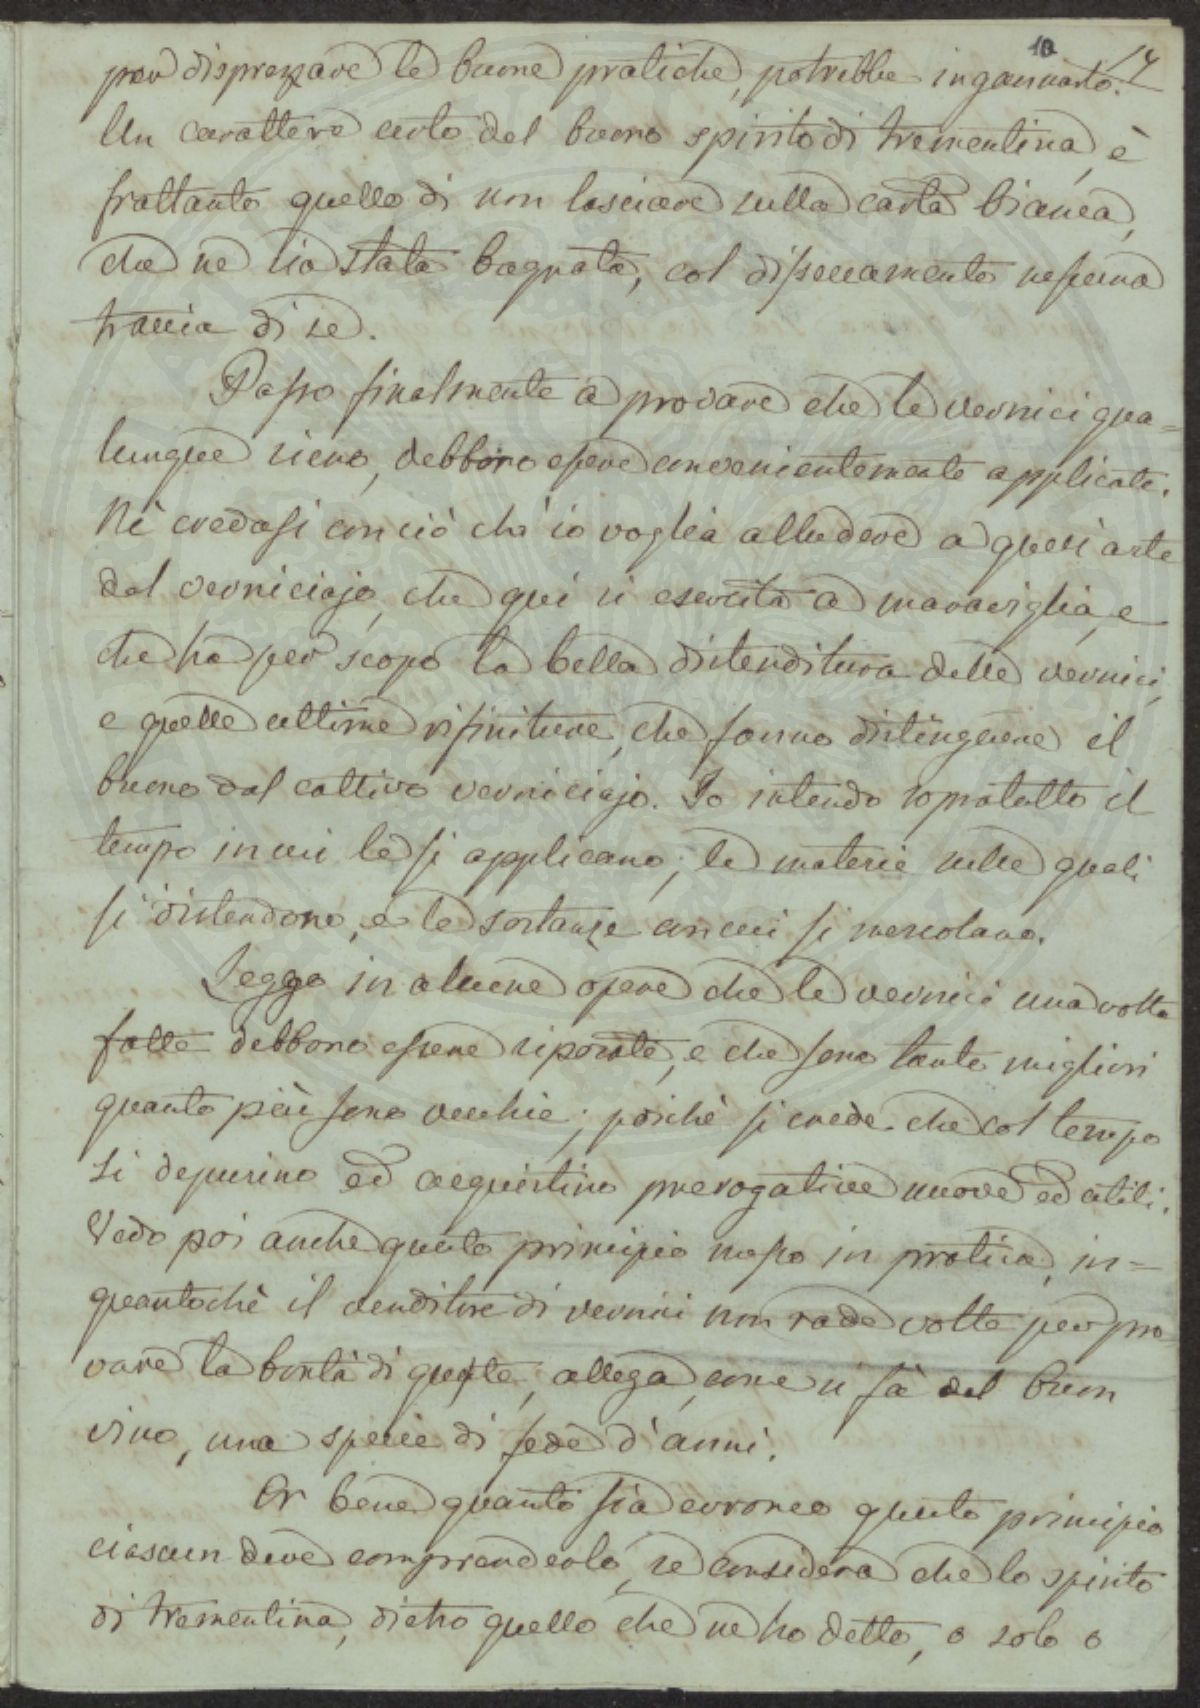 10 14
per disprezzare le buone pratiche, potrebbe ingannarto.
Un carattere certo del buono spirito di trementina, è
frattanto quello di non lasciare sulla carta bianca,
che ne sia stata bagnata, col disseccamento nessuna
traccia di se.
Passo finalmente a provare che le vernici qua=
lunque sieno, debbono essere convenientemente applicate.
Nè credasi con ciò ch'io voglia alludere a quell'arte
del verniciajo, che qui si esercita a maraviglia, e
che ha per scopo la bella distenditura delle vernici,
e quelle ultime rifiniture, che fanno distinguere il
buono dal cattivo verniciajo. Io intendo sopratutto il
tempo in cui le si applicano; le materie sulle quali
si distendono, e le sostanze con cui si mescolano.
Leggo in alcune opere che le vernici una volta
fatte debbono essere riposate, e che sono tanto migliori
quanto più sono vecchie; poichè si crede che col tempo
si depurino ed acquistino prerogative nuove ed utili.
Vedo poi anche questo principio messo in pratica, in=
quantochè il venditore di vernici non rade volte per pro
vare la bontà di queste, allega, come si fà del buon
vino, una specie di fede d'anni.
Or bene quanto sia erroneo questo principio
ciascun deve comprenderlo, se considera che lo spirito
di trementina, dietro quello che ne ho detto, o solo o